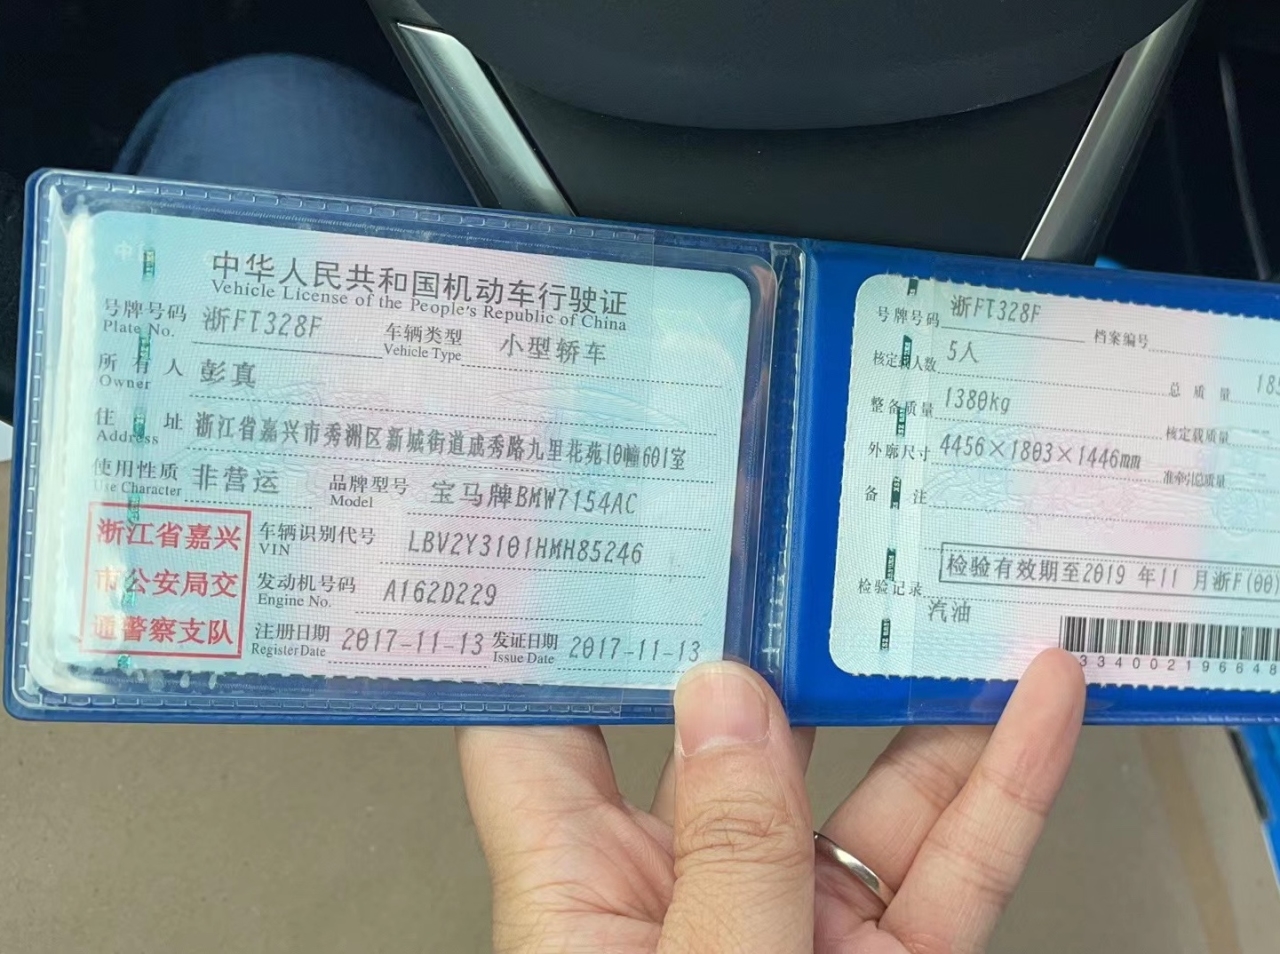 中华人民共和国机动车行驶证
Vehicle License of the People's Republic of China
号牌号码 浙FT328F 车辆类型 小型轿车
Plate No. Vehicle Type
所有人 彭真
Owner
住址 浙江省嘉兴市秀洲区新城街道成秀路九里花苑10幢601室
Address
使用性质 非营运 品牌型号 宝马牌BMW7154AC
Use Character Model
浙江省嘉兴
市公安局交
通警察支队
车辆识别代号 LBV2Y3101HMH85246
VIN
发动机号码 A162D229
Engine No.
注册日期 2017-11-13 发证日期 2017-11-13
Register Date Issue Date
号牌号码 浙FT328F 档案编号
核定载人数 5人 总质量 18
整备质量 1380kg 核定载质量
外廓尺寸 4456×1803×1446mm 准牵引总质量
备注
检验记录 检验有效期至2019年11月浙F(00)
汽油
334002196648